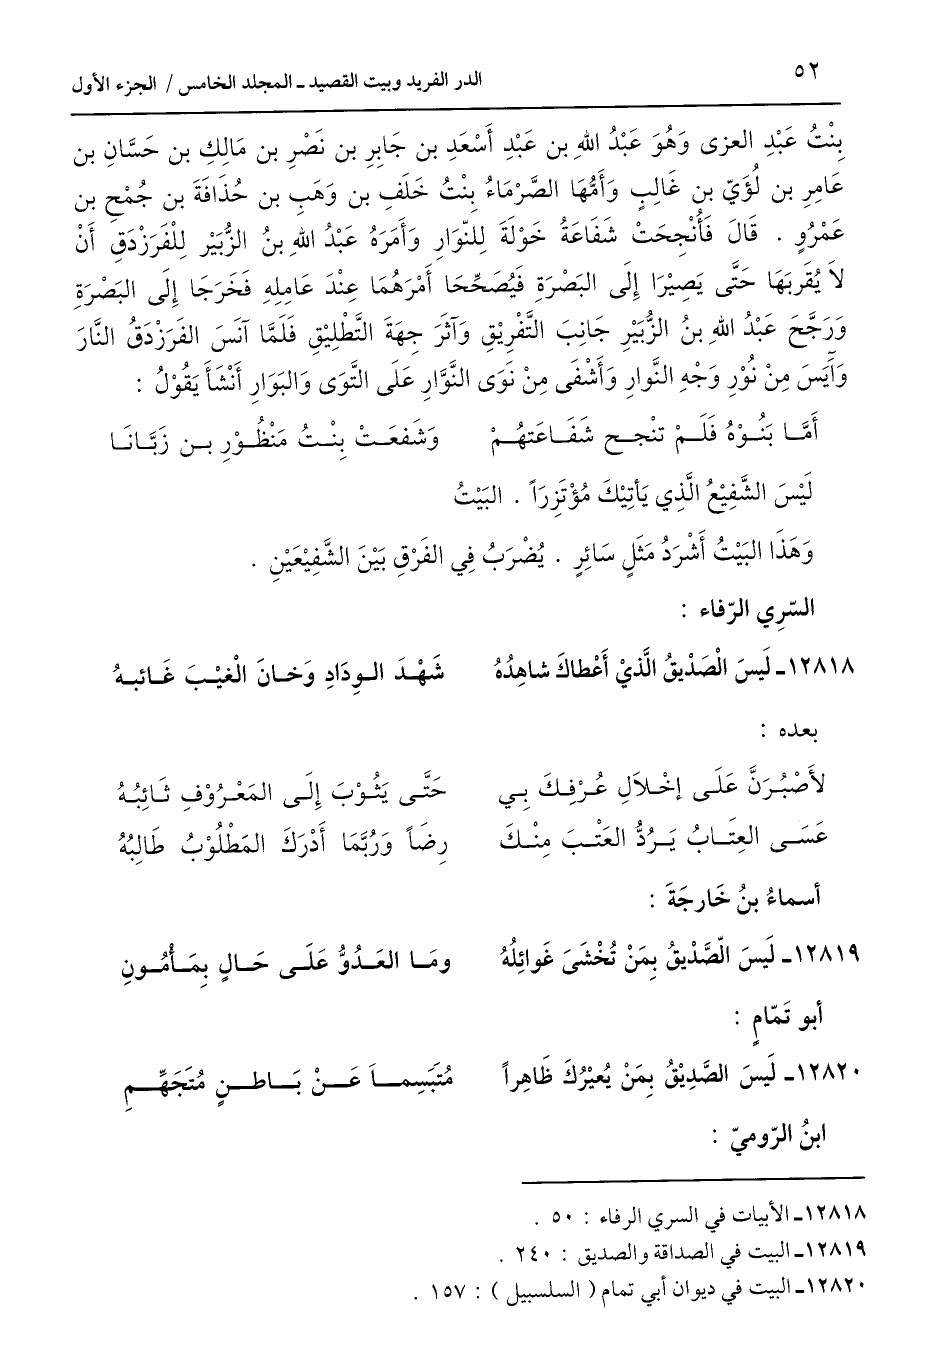 ٥٢
الدر الفريد وبيت القصيد ـ المجلد الخامس / الجزء الأول
بِنْتُ عَبْدِ العزى وَهُوَ عَبْدُ اللهِ بن عَبْدِ أَسْعَدِ بن جَابِرِ بن نَصْرِ بن مَالِكِ بن حَسَّانِ بن
عَامِرِ بن لُؤَيّ بن غَالِبٍ وَأُمُّهَا الصَّرْمَاءُ بِنْتُ خَلَفِ بن وَهَبِ بن حُذَافَةَ بن جُمْحِ بن
عَمْرُوٍ . قَالَ فَأُنْجِحَتْ شَفَاعَةُ خَوْلَةَ لِلنَّوَارِ وَأَمَرَهُ عَبْدُ اللهِ بنُ الزُّبَيْرِ لِلْفَرَزْدَقِ أَنْ
لاَ يُقَربَهَا حَتَّى يَصِيْرَا إِلَى البَصْرَةِ فَيُصَحِّحَا أَمْرَهُمَا عِنْدَ عَامِلِهِ فَخَرَجَا إِلَى البَصْرَةِ
وَرَجَّحَ عَبْدُ اللهِ بنُ الزُّبَيْرِ جَانِبَ التَّفْرِيْقِ وَآثَرَ جِهَةَ التَّطْلِيْقِ فَلَمَّا آنَسَ الفَرَزْدَقُ النَّارَ
وَآيَسَ مِنْ نُوْرِ وَجْهِ النَّوارِ وَأَشْفَى مِنْ نَوَى النَّوَّارِ عَلَى التَّوَى وَالبَوَارِ أَنْشَأَ يَقُوْلُ :
أَمَّا بَنُوْهُ فَلَمْ تنْجح شَفَاعَتهُمْ وَشَفعَتْ بِنْتُ مَنْظُوْرِ بن زَبَّانَا
لَيْسَ الشَّفِيْعُ الَّذِي يَأتِيْكَ مُؤْتَزِرَاً . البَيْتُ
وَهَذَا البَيْتُ أَشْرَدُ مَثَلٍ سَائِرٍ . يُضْرَبُ فِي الفَرْقِ بَيْنَ الشَّفِيْعَيْنِ .
السّرِي الرّفاء :
١٢٨١٨ـ لَيسَ الْصَدِيقُ الَّذيْ أَعْطاكَ شاهِدُهُ شَهْدَ الودَادِ وَخانَ الْغيْبَ غَائبهُ
بعده :
لأَصْبُرَنَّ عَلَى إخْلاَلِ عُرْفِكَ بِي حَتَّى يَثُوْبَ إِلَى المَعْرُوْفِ ثَائِبُهُ
عَسَى العِتَابُ يَرُدُّ العَتْبَ مِنْكَ رِضَاً وَرُبَّمَا أَدْرَكَ المَطْلُوْبُ طَالِبُهُ
أسماءُ بنُ خَارجَةَ :
١٢٨١٩ـ لَيسَ الْصَّدْيقُ بِمَنْ تُخْشَىَ غَوائِلُهُ ومَا العَدُوُّ عَلَى حَالٍ بِمَأمُونِ
أبو تَمّامٍ :
١٢٨٢٠ـ لَيسَ الصَّدِيْقُ بِمَنْ يُعيْرُكَ ظَاهِراً مُتَبَسِماً عَنْ بَاطنٍ مُتَجَهِّمِ
ابنُ الرّوميّ :
١٢٨١٨ـ الأبيات في السري الرفاء : ٥٠ .
١٢٨١٩ـ البيت في الصداقة والصديق : ٢٤٠ .
١٢٨٢٠ـ البيت في ديوان أبي تمام ( السلسبيل ) : ١٥٧ .